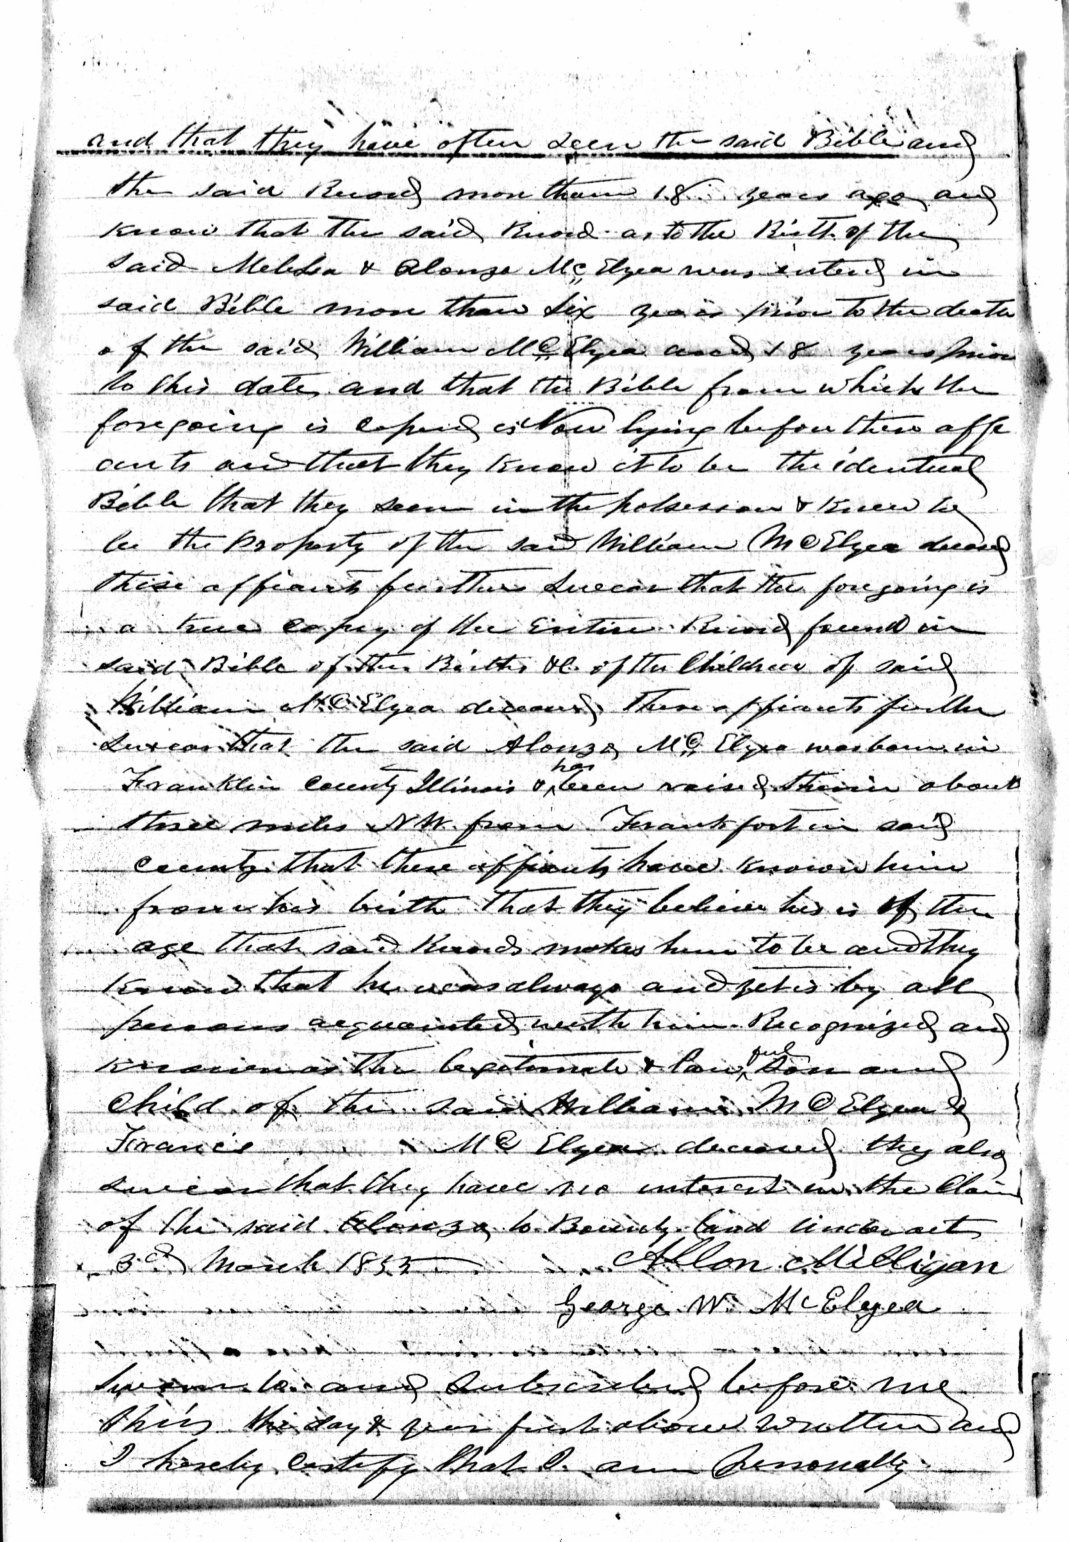 and that they have often seen the said Bible and
the said Record more than 18 years ago and
know that the said Record as to the Birth of the
said Melissa & Alonzo McElyea was entered in
said Bible more than six years prior to the death
of the said William McElyea and 18 years prior
to this date and that the Bible from which the
foregoing is copied is Now lying before these affi
ants and that they know it to be the identical
Bible that they seen in the possession & knew to
be the Property of the said William McElyea deceased
these affiants further swear that the foregoing is
a true copy of the entire Record found in
said Bible of the Births &c. of the Children of said
William McElyea deceased, these affiants further
swear that the said Alonzo McElyea was born in
Franklin County Illinois & has been raised therein about
three miles N.W. from Frankfort in said
county that these affiants have known him
from his birth that they believe he is of the
age that said Record makes him to be and they
know that he was always and yet is by all
persons acquainted with him Recognized and
known as the legitimate & lawful Son and
Child of the said William McElyea &
Francis McElyea deceased they also
swear that they have no interest in the Claim
of the said Alonzo to Bounty land under act
3rd March 1855 Allon Milligan
George W. McElyea
Sworn to and Subscribed before me
this the day & year first above written and
I hereby certify that I am personally